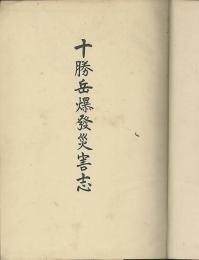 十勝岳爆發災害志